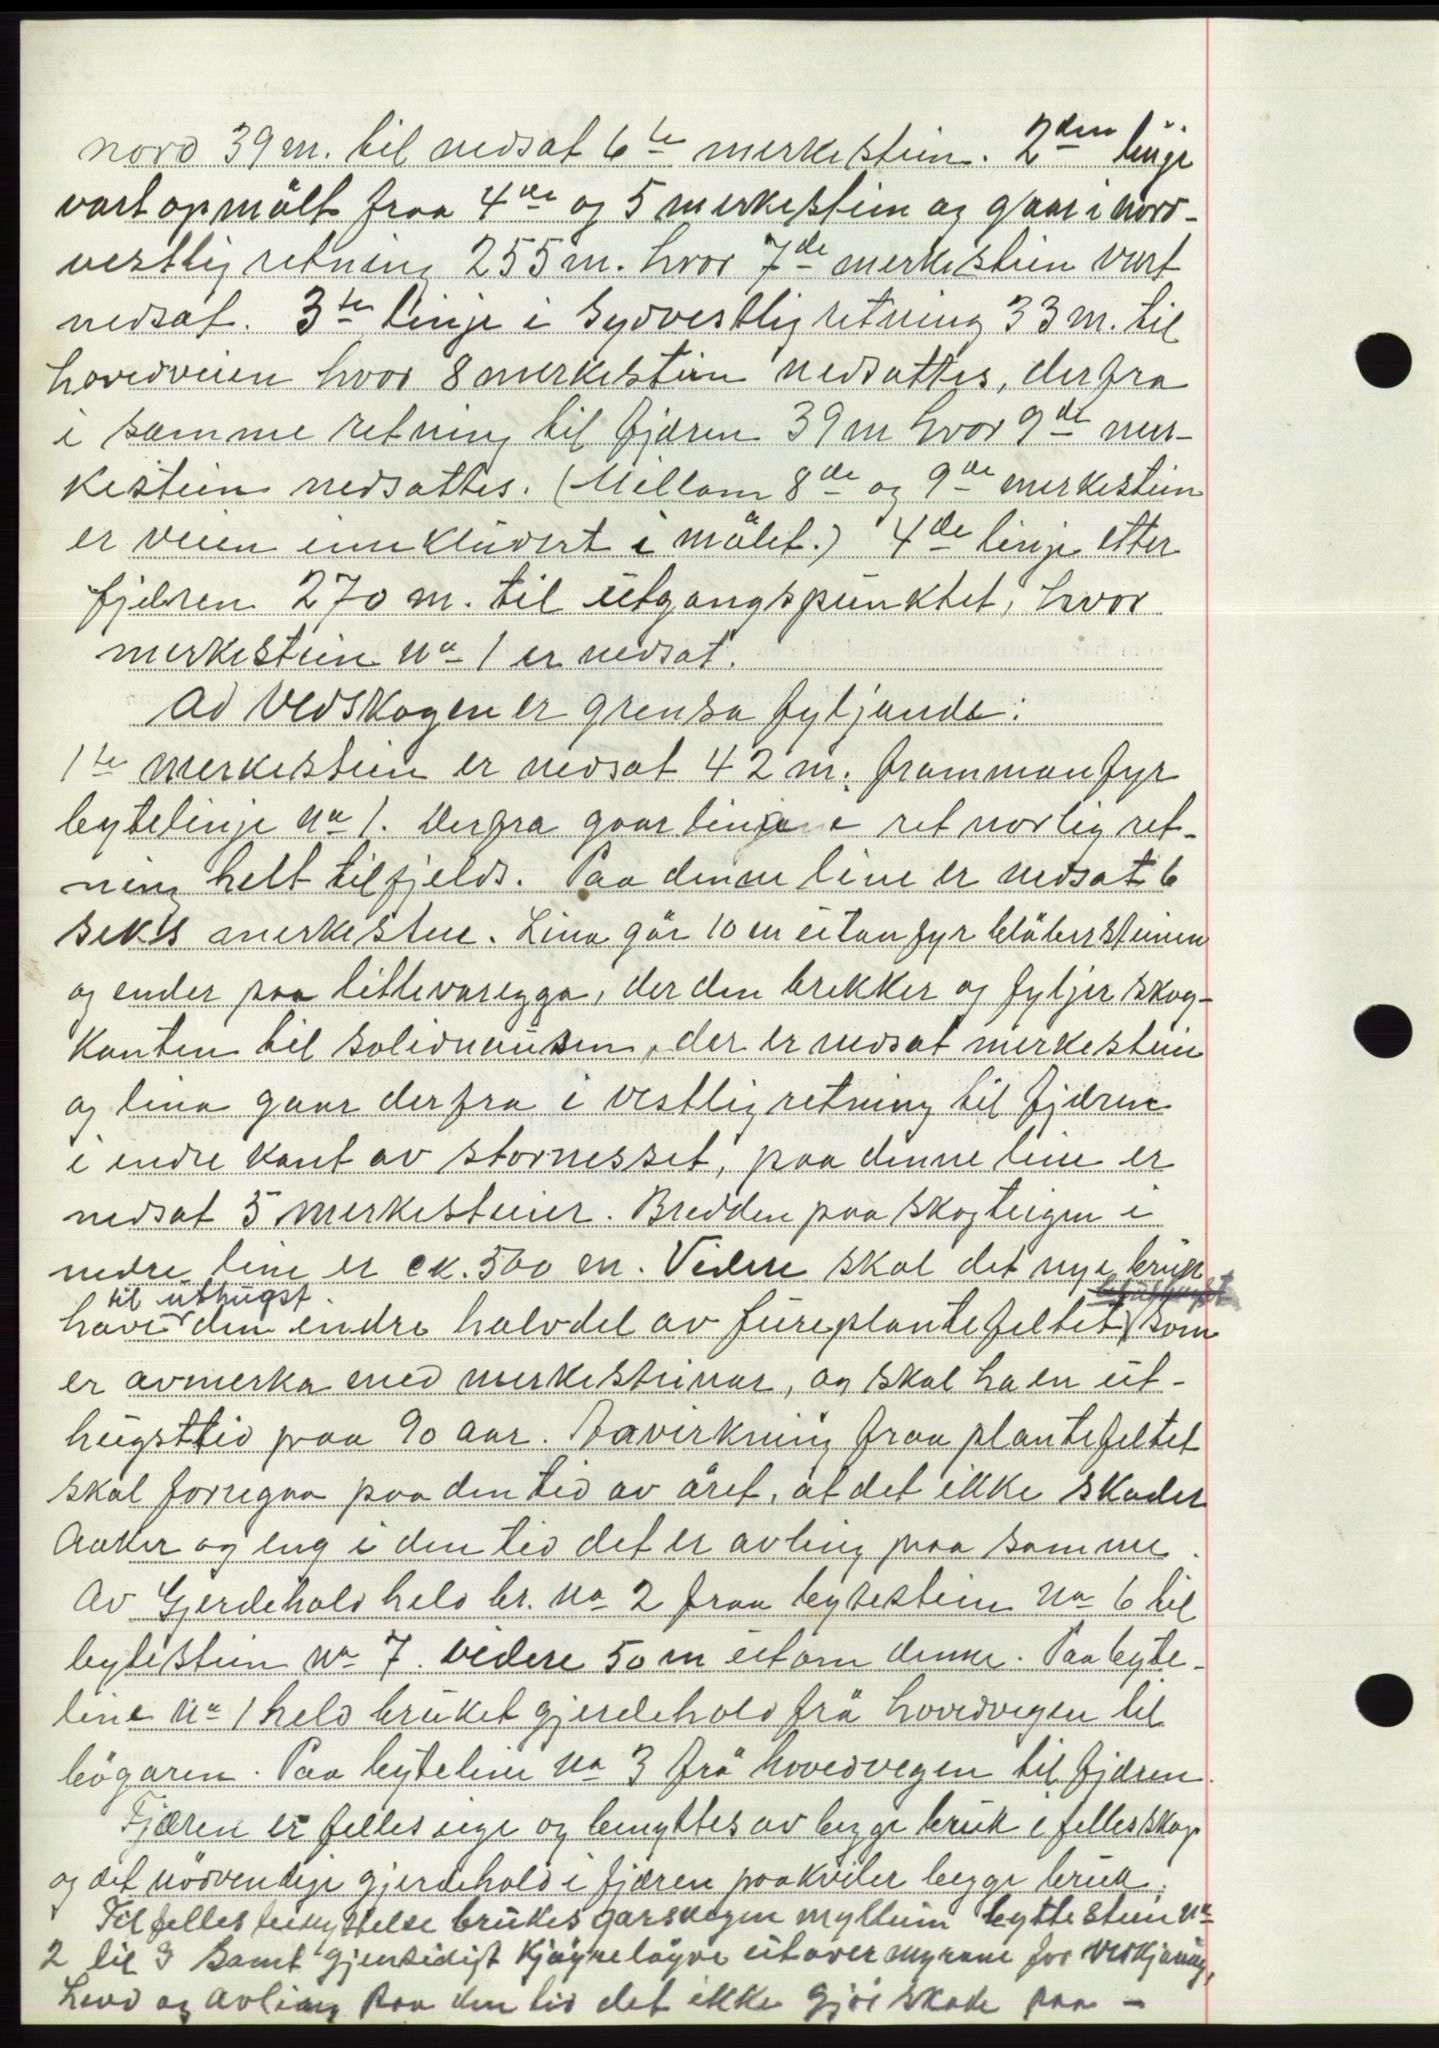 nord 39 m. til nedsat 6te merkestein. 2den linje
vart opmålt fraa 4de og 5 merkestein og gaar i nord-
vestlig retning 255 m. hvor 7de merkestein vart
nedsat. 3te linje i sydvestlig retning 33 m. til
hovedveien hvor 8 merkestein nedsattes, derfra
i samme retning til fjæren 39 m hvor 9de mer-
kestein nedsattes. (Millom 8de og 9de merkestein
er veien innkludert i målet.) 4de linje etter
fjæren 270 m. til utgangspunktet, hvor
merkestein No 1 er nedsat.
Ad Vedskogen er grensa fyljande:
1te merkestein er nedsat 42 m. framman fyr
bytelinje No 1. Derfra gaar linjene ret norlig ret-
ning helt tilfjelds. Paa denne line er nedsat 6
seks merkestene. Lina går 10 m utan fyr blåbersteinen
og ender paa litlevaregga, der den brekker og fyljer skog-
kanten til solidnausen, der er nedsat merkestein
og lina gaar derfra i vestlig retning til fjæren
i endre kant av stornesset, paa denne line er
nedsat 5 merkesteiner. Bredden paa skogteigen i
nedre line er ck. 500 m. Videre skal det nye bruk
til uthugst
have den indre halvdel av fureplantefeltet som
er avmerka med merkesteinar, og skal ha en ut-
hugsttid paa 90 aar. Aavirkning fraa plantefeltet
skal forregaa paa den tid av året, at det ikke skader
Aaker og eng i den tid det er avling paa samme.
Av Gjerdehald held br. No 2 fraa bytestein No 6 til
bytestein No 7. videre 50 m utom denne. Paa byte-
line No 1 held bruket gjerdehold frå hovedvegen til
bøgaren. Paa byteline No 3 frå hovedvegen til fjæren.
Fjæren er felles eige og benyttes av begge bruk i fellesskap
og det nødvendige gjerdehold i fjæren paakviler begge bruk.
Til felles benyttelse brukes garsvegen myllum byttestein No
2 til 3 samt gjensidigt kjøyreløyve utover myrane for vedkjøring,
Lauv og avling paa den tid det ikke gjør skade paa –